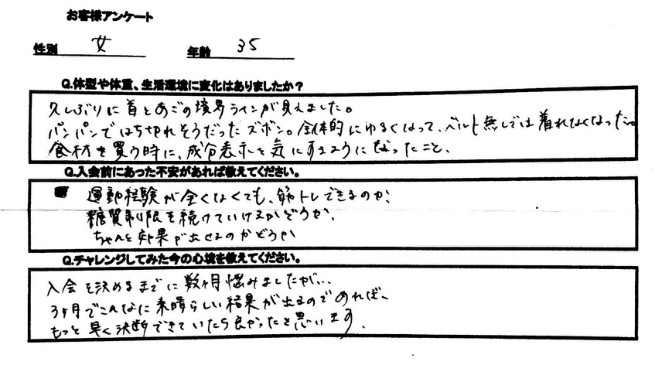 お客様アンケート
性別 女 年齢 35
Q.体型や体重、生活環境に変化はありましたか？
久しぶりに首とあごの境界ラインが見えました。
パンパンではち切れそうだったズボン。全体的にゆるくなって、ベルト無しでは着れなくなった。
食材を買う時に、成分表示を気にするようになったこと。
Q.入会前にあった不安があれば教えてください。
運動経験が全くなくても、筋トレできるのか、
糖質制限を続けていけるかどうか、
ちゃんと効果が出せるのかどうか
Q.チャレンジしてみた今の心境を教えてください。
入会を決めるまでに数ヶ月悩みましたが…、
3ヶ月でこんなに素晴らしい結果が出るのであれば、
もっと早く決断できていたら良かったと思います。